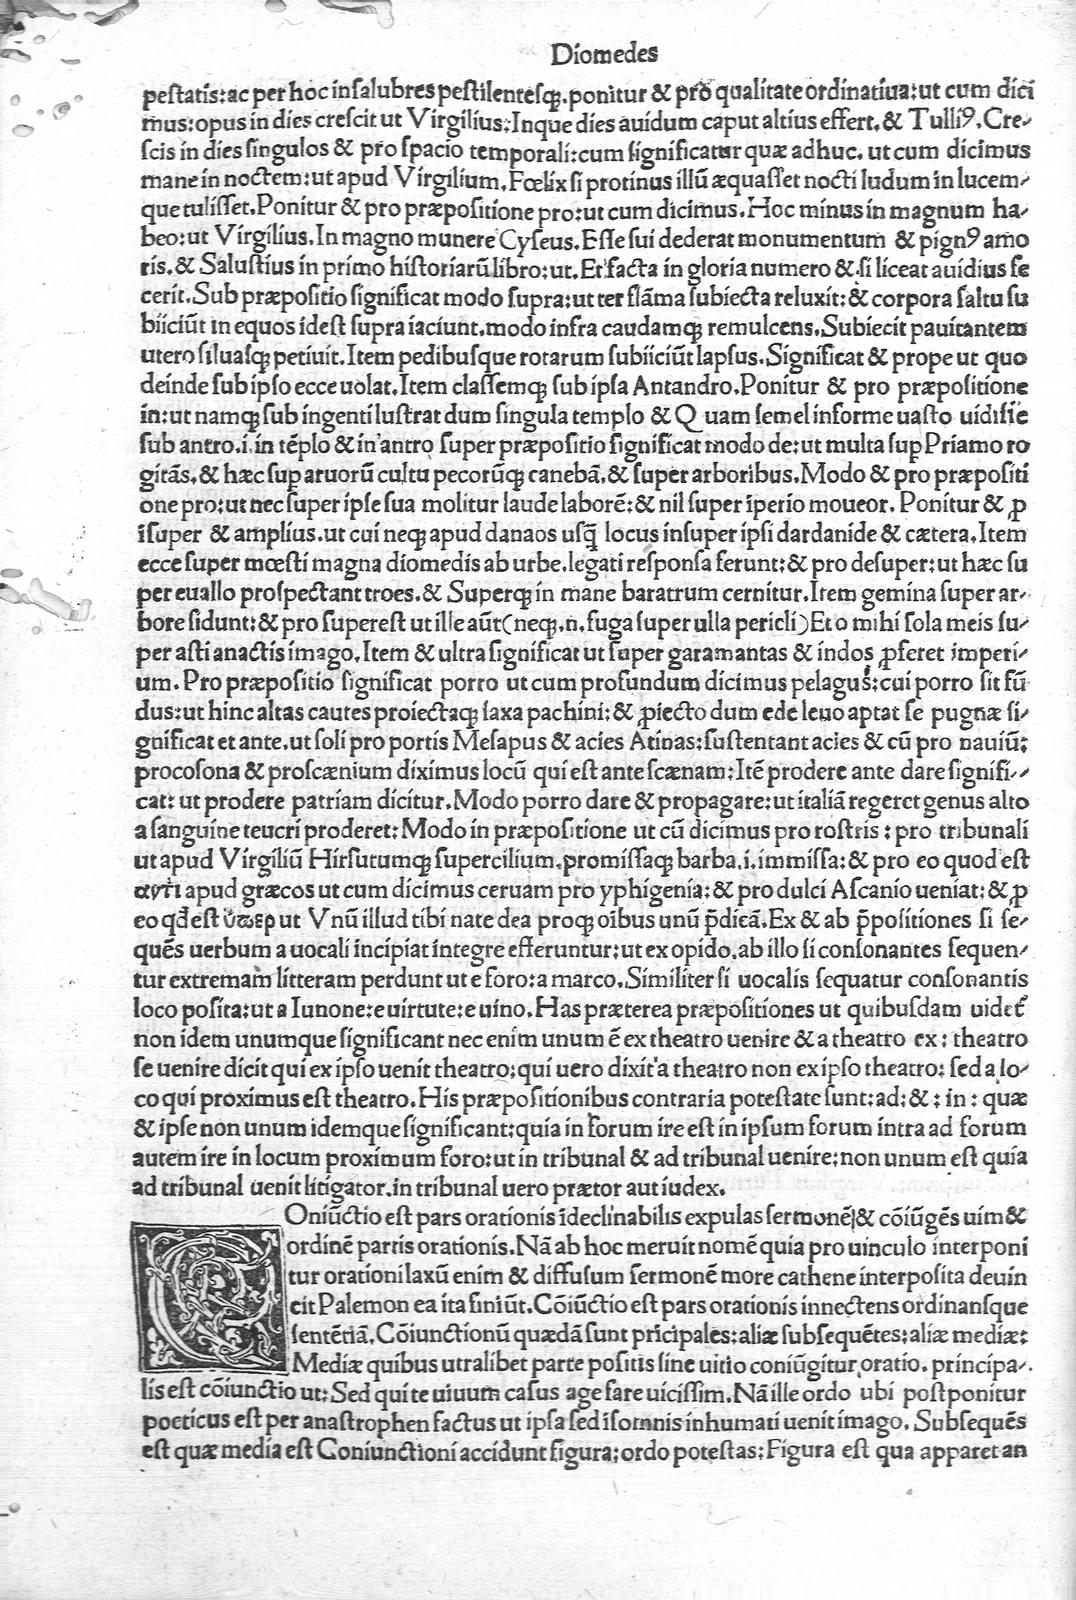 Diomedes
pestatis:ac per hoc insalubres pestilentesq;.ponitur & prō qualitate ordinatiua:ut cum dici
mus:opus in dies crescit ut Virgilius:Inque dies auidum caput altius effert.& Tulliꝰ.Cre-
scis in dies singulos & pro spacio temporali:cum significatur quæ adhuc. ut cum dicimus
mane in noctem:ut apud Virgilium.Fœlix si protinus illū æquasset nocti ludum in lucem-
que tulisset.Ponitur & pro præpositione pro:ut cum dicimus.Hoc minus in magnum ha-
beo:ut Virgilius.In magno munere Cyseus.Esse sui dederat monumentum & pignꝰ amo
ris.& Salustius in primo historiarū libro:ut.Et facta in gloria numero &.si liceat auidius fe
cerit.Sub præpositio significat modo supra:ut ter flāma subiecta reluxit:& corpora saltu su
biiciūt in equos idest supra iaciunt.modo infra caudamq; remulcens.Subiecit pauitantem
utero siluasq; petiuit.Item pedibusque rotarum subiiciūt lapsus.Significat & prope ut quo
deinde sub ipso ecce uolat.Item classemq; sub ipsa Antandro.Ponitur & pro præpositione
in:ut namq; sub ingenti lustrat dum singula templo & Q uam semel informe uasto uidisse
sub antro.i.in tēplo & in antro super præpositio significat modo de:ut multa suꝑ Priamo ro
gitās.& hæc suꝑ aruorū cultu pecorūq; canebā.& super arboribus.Modo & pro præpositi
one pro:ut nec super ipse sua molitur laude laborē:& nil super iperio moueor. Ponitur & ꝓ
isuper & amplius.ut cui neq; apud danaos usq̄ locus insuper ipsi dardanide & cætera.Item
ecce super mœsti magna diomedis ab urbe.legati responsa ferunt:& pro desuper:ut hæc su
per euallo prospectant troes.& Superq; in mane baratrum cernitur.Item gemina super ar-
bore sidunt:& pro superest ut ille aūt(neq;.n.fuga super ulla pericli)Et o mihi sola meis su-
per asti anactis imago.Item & ultra significat ut super garamantas & indos ꝓferet imperi-
um. Pro præpositio significat porro ut cum profundum dicimus pelagus:cui porro sit fū
dus:ut hinc altas cautes proiectaq; saxa pachini:& ꝓiecto dum ede leuo aptat se pugnæ si-
gnificat et ante.ut soli pro portis Mesapus & acies Atinas:sustentant acies & cū pro nauiū:
procosona & proscænium diximus locū qui est ante scænam:Itē prodere ante dare signifi-
cat: ut prodere patriam dicitur.Modo porro dare & propagare:ut italiā regeret genus alto
a sanguine teucri proderet:Modo in præpositione ut cū dicimus pro rostris : pro tribunali
ut apud Virgiliū Hirsutumq; supercilium.promissaq; barba.i.immissa:& pro eo quod est
ἀντὶ apud græcos ut cum dicimus ceruam pro yphigenia:& pro dulci Ascanio ueniat:& ꝓ
eo qd̄ est ὑπερ ut Vnū illud tibi nate dea proq; oībus unū p̄dicā.Ex & ab p̄positiones si se-
quēs uerbum a uocali incipiat integre efferuntur:ut ex opido.ab illo si consonantes sequen-
tur extremam litteram perdunt ut e foro:a marco.Similiter si uocalis sequatur consonantis
loco posita:ut a Iunone:e uirtute:e uino.Has præterea præpositiones ut quibusdam uidet̄
non idem unumque significant nec enim unum ē ex theatro uenire & a theatro ex: theatro
se uenire dicit qui ex ipso uenit theatro:qui uero dixit a theatro non ex ipso theatro: sed a lo-
co qui proximus est theatro.His præpositionibus contraria potestate sunt:ad:& : in : quæ
& ipse non unum idemque significant:quia in forum ire est in ipsum forum intra ad forum
autem ire in locum proximum foro:ut in tribunal & ad tribunal uenire:non unum est quia
ad tribunal uenit litigator.in tribunal uero prætor aut iudex.
COniūctio est pars orationis īdeclinabilis expulas sermonē & cōiūgēs uim &
ordinē partis orationis.Nā ab hoc meruit nomē quia pro uinculo interponi
tur orationi laxū enim & diffusum sermonē more cathene interposita deuin
cit Palemon ea ita finiūt.Cōiūctio est pars orationis innectens ordinansque
sentētiā.Cōiunctionū quædā sunt pricipales:aliæ subsequētes:aliæ mediæ:
Mediæ quibus utralibet parte positis sine uitio coniūgitur oratio. principa-.
lis est cōiunctio ut:Sed qui te uiuum casus age fare uicissim.Nā ille ordo ubi postponitur
poeticus est per anastrophen factus ut ipsa sed isomnis inhumati uenit imago. Subsequēs
est quæ media est Coniunctioni accidunt figura:ordo potestas:Figura est qua apparet an